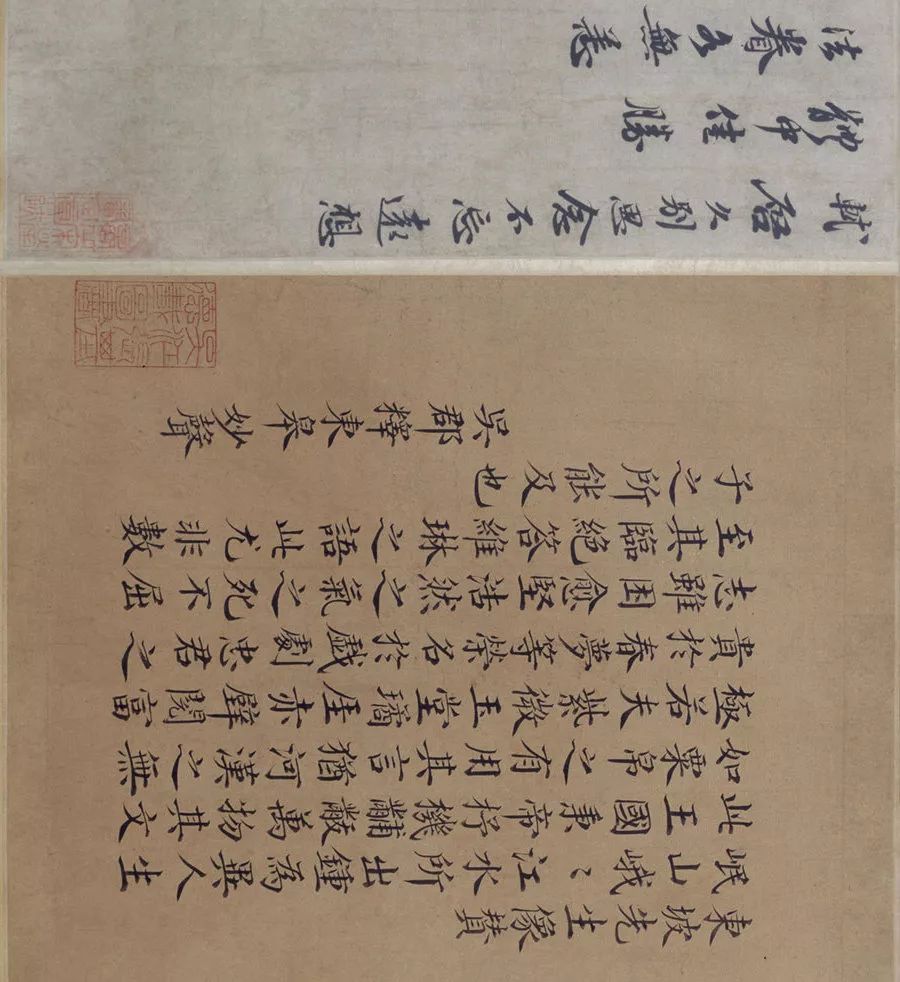 東坡先生像贊
岷山峨〻江水所出鍾為異人生
此王國秉帝杼機黼黻萬物其文
如粟帛之有用其言猶河漢之無
極若夫紫微玉堂瓊崖赤壁閱富
貴於春夢等榮名於戲劇忠君之
志雖困愈堅浩然之氣之死不屈
至其臨絕答維琳之語此尤非數
子之所能及也
吳郡釋東皋妙聲
軾啓久別思念不忘遠想
體中佳勝
法眷各無恙